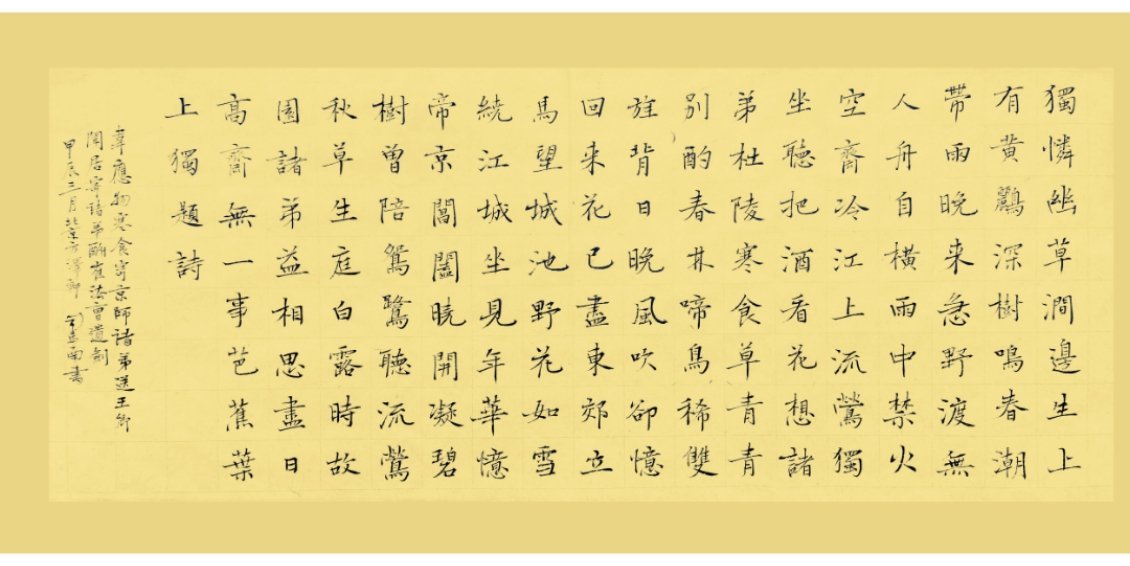 獨憐幽草澗邊生上
有黃鸝深樹鳴春潮
帶雨晚來急野渡無
人舟自橫雨中禁火
空齋冷江上流鶯獨
坐聽把酒看花想諸
弟杜陵寒食草青青
別酌春林啼鳥稀雙
旌背日晚風吹卻憶
回來花已盡東郊立
馬望城池野花如雪
繞江城坐見年華憶
帝京閶闔曉開凝碧
樹曾陪鴛鷺聽流鶯
秋草生庭白露時故
園諸弟益相思盡日
高齋無一事芭蕉葉
上獨題詩
韋應物寒食寄京師諸弟送王卿
閑居寄諸弟酬崔法曹遺劍
甲辰三月 書